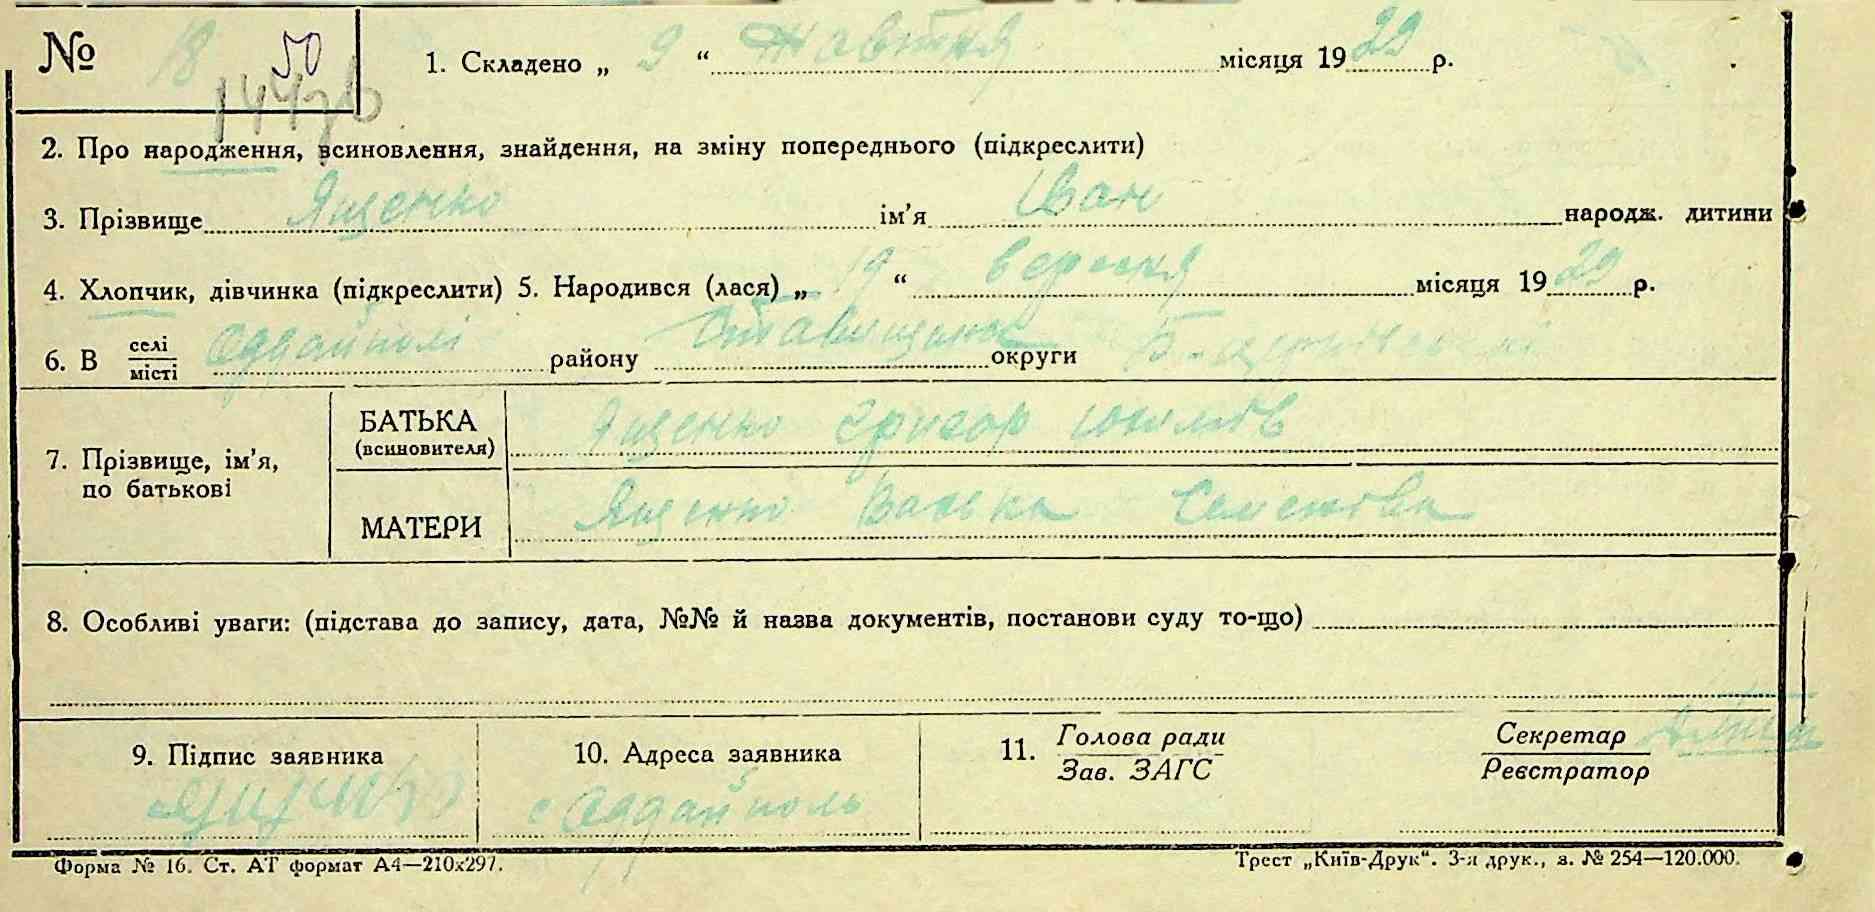 № 18 50
1447в
1. Складено „ 9 “ Жовтня місяця 1929 р.
2. Про народження, всиновлення, знайдення, на зміну попереднього (підкреслити)
3. Прізвище Ященко ім’я Іван народж. дитини
4. Хлопчик, дівчинка (підкреслити) 5. Народився (лася) „ 19 “ вересня місяця 1929 р.
6. В селі/місті району Ставищан округи Б-Церківської
7. Прізвище, ім’я, по батькові
БАТЬКА (всиновителя) Ященко Григор
МАТЕРИ Ященко Семенівна
8. Особливі уваги: (підстава до запису, дата, №№ й назва документів, постанови суду то-що)
9. Підпис заявника
10. Адреса заявника с
11. Голова ради
Зав. ЗАГС
Секретар
Реєстратор
Форма № 16. Ст. АТ формат А4—210х297.
Трест „Київ-Друк“. 3-я друк., з. № 254—120.000.